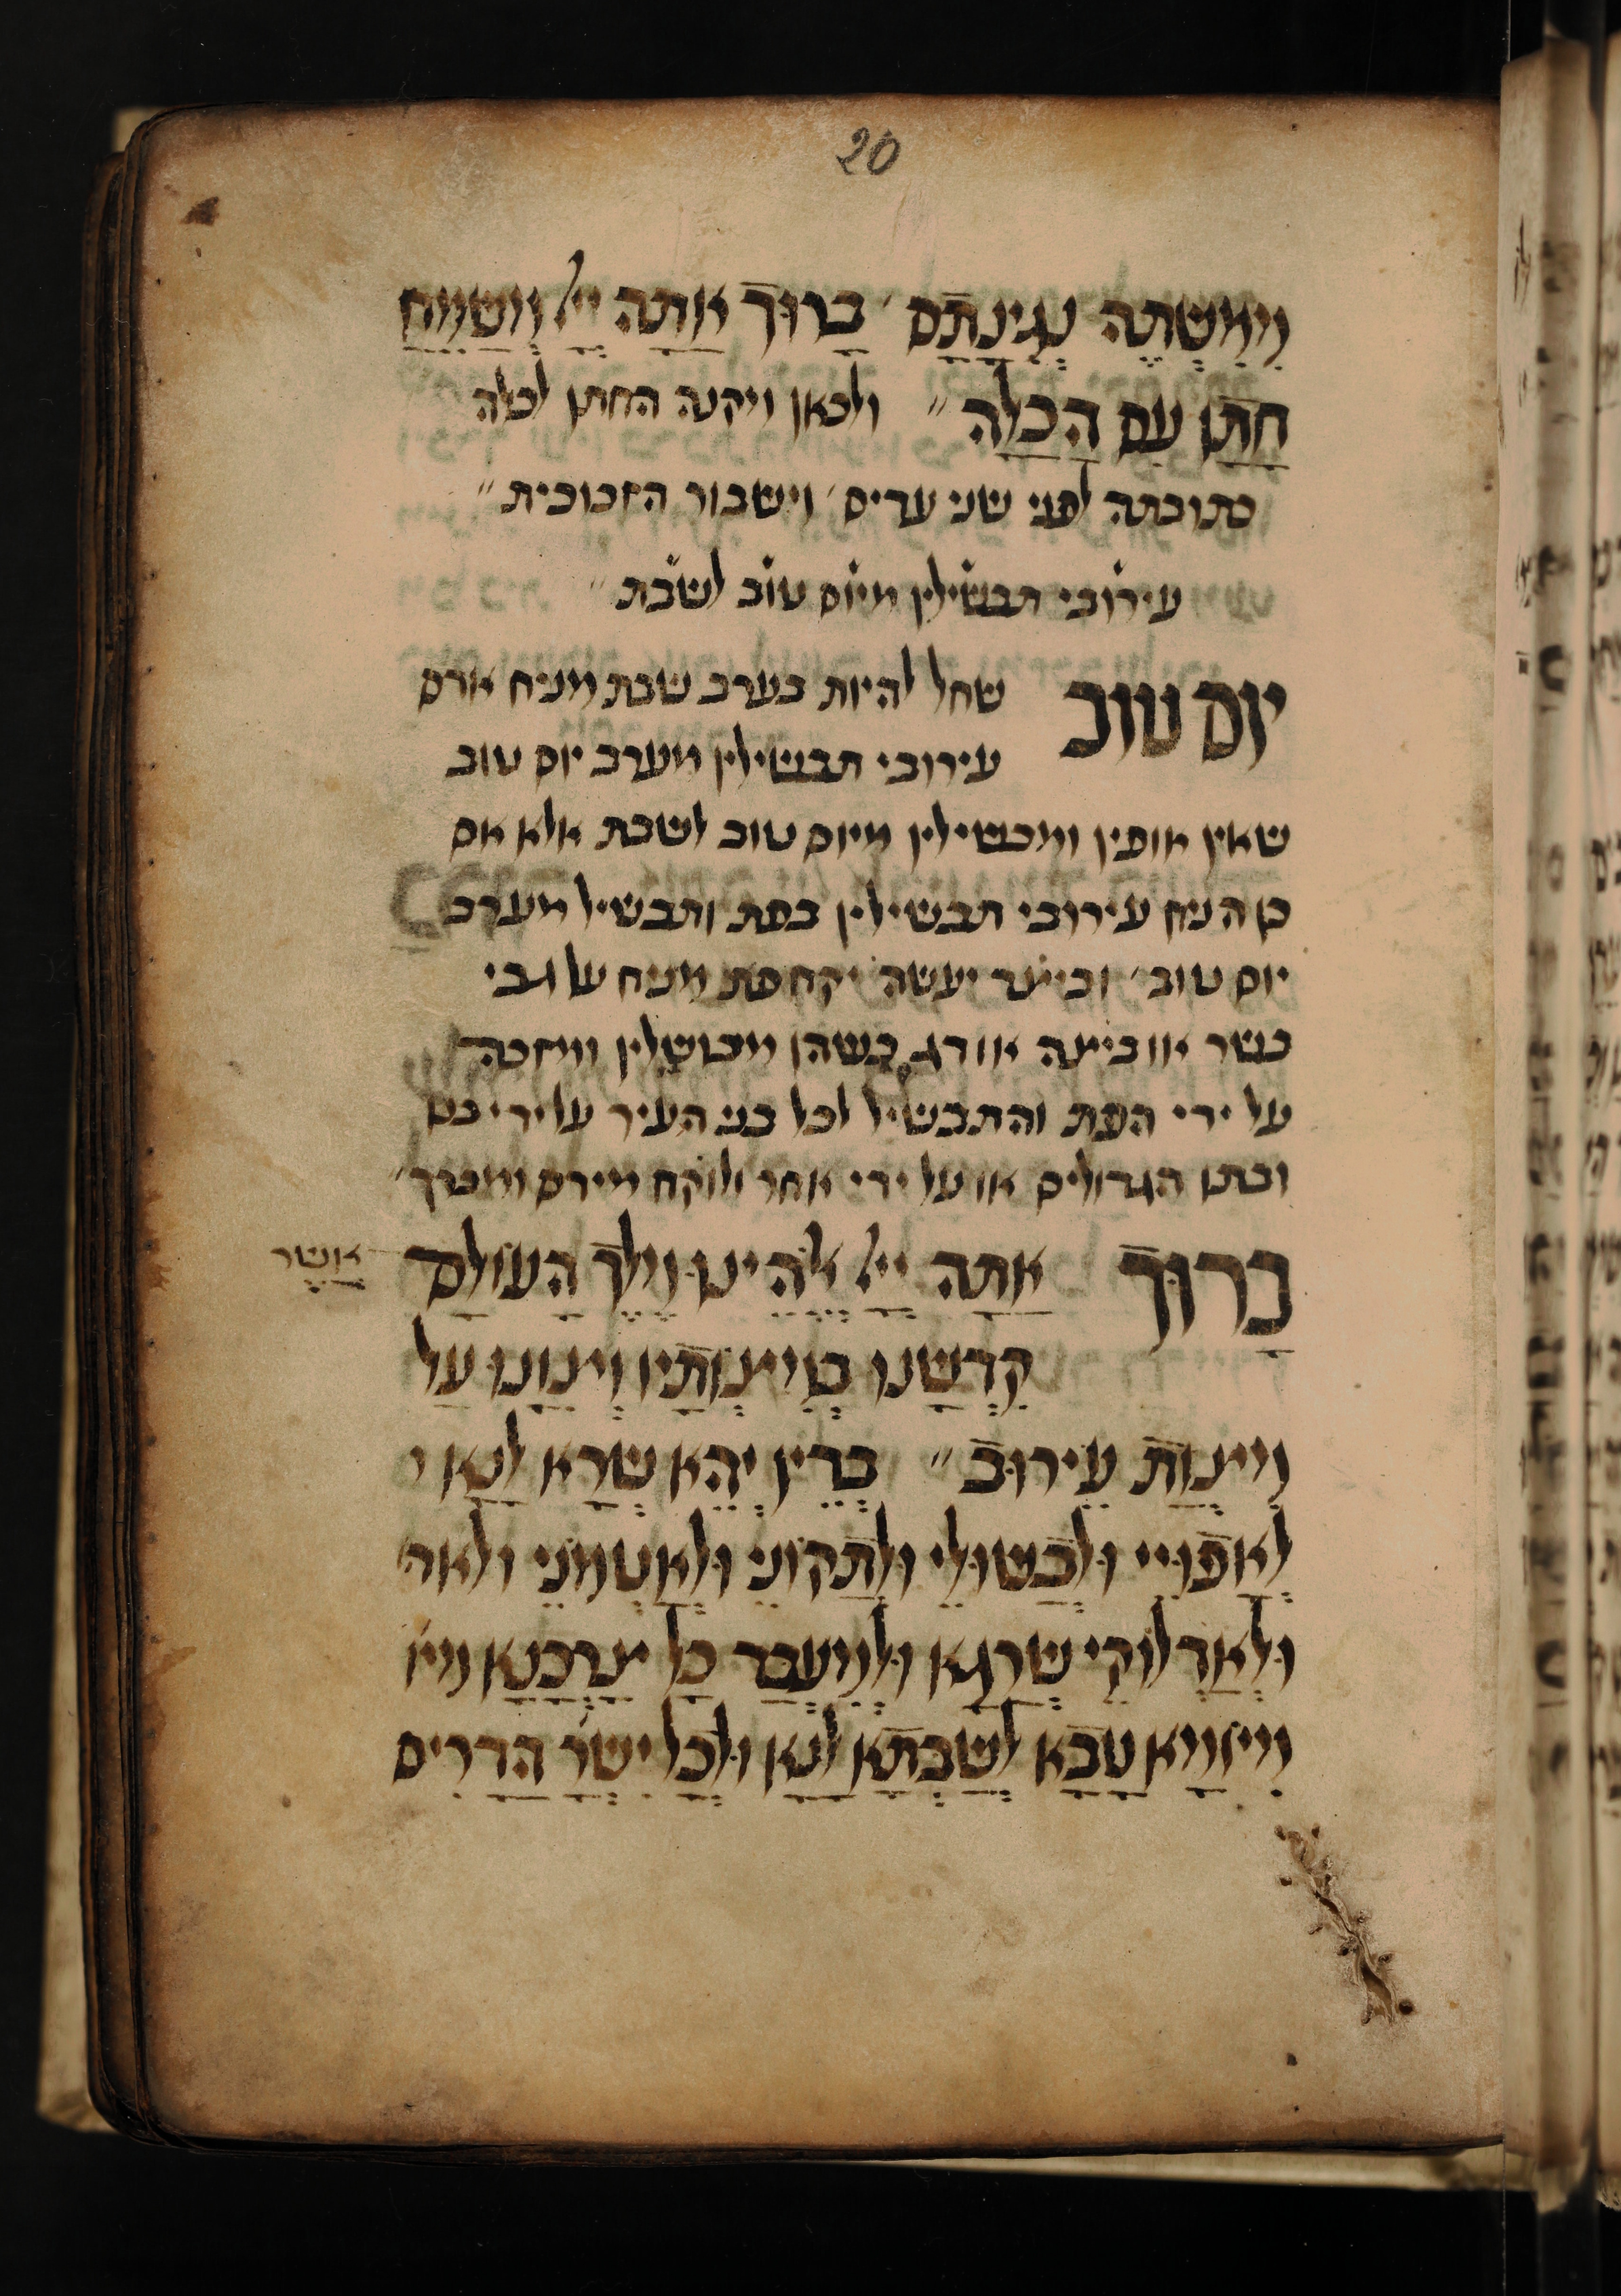 20
מִמִּשְׁתֵּה נְגִינָתָם׳ בָּרוּךְ אַתָּה יְיָ מְשַׂמֵּחַ
חָתָן עִם הַכַּלָּה״ ולכאן ויקנה החתן לכלה
כתובתה לפני שני עדים׳ וישבור הזכוכית״
עירובי תבשילין מיום טוב לשבת״
יום טוב שחל להיות בערב שבת מניח אדם
עירובי תבשילין מערב יום טוב
שאין אופין ומבשילין מיום טוב לשבת אלא אם
כן הניח עירובי תבשילין בפת ותבשיל מערב
יום טוב׳ וכיצד יעשה יקח פת מניח על גבי
בשר או ביצה או דג כשהן מבושלין ומזכה
על ידי הפת והתבשיל לכל בני העיר על ידי בנו
ובתו הגדולים או על ידי אחר ולוקח מידם ומברך׳
בָּרוּךְ אַתָּה יְיָ אֱלֹהֵינוּ מֶלֶךְ הָעוֹלָם אֲשֶׁר
קִדְּשָׁנוּ בְּמִצְוֹתָיו וְצִוָּנוּ עַל
מִצְוַת עֵירוּב״ בְּדֵין יְהֵא שְׁרֵא לָנָא
לַאֲפוּיֵי וּלְבַשּׁוּלֵי וּלְתַקּוּנֵי וּלְאַטְמוֹנֵי ולאד
וּלְאַדְלוּקֵי שְׁרָגָא וּלְמֶעְבַּד כָּל צָרְכָנָא מיו
מִיּוֹמָא טָבָא לְשַׁבְּתָא לָנָא וּלְכָל יִשְׂרָ הדרים